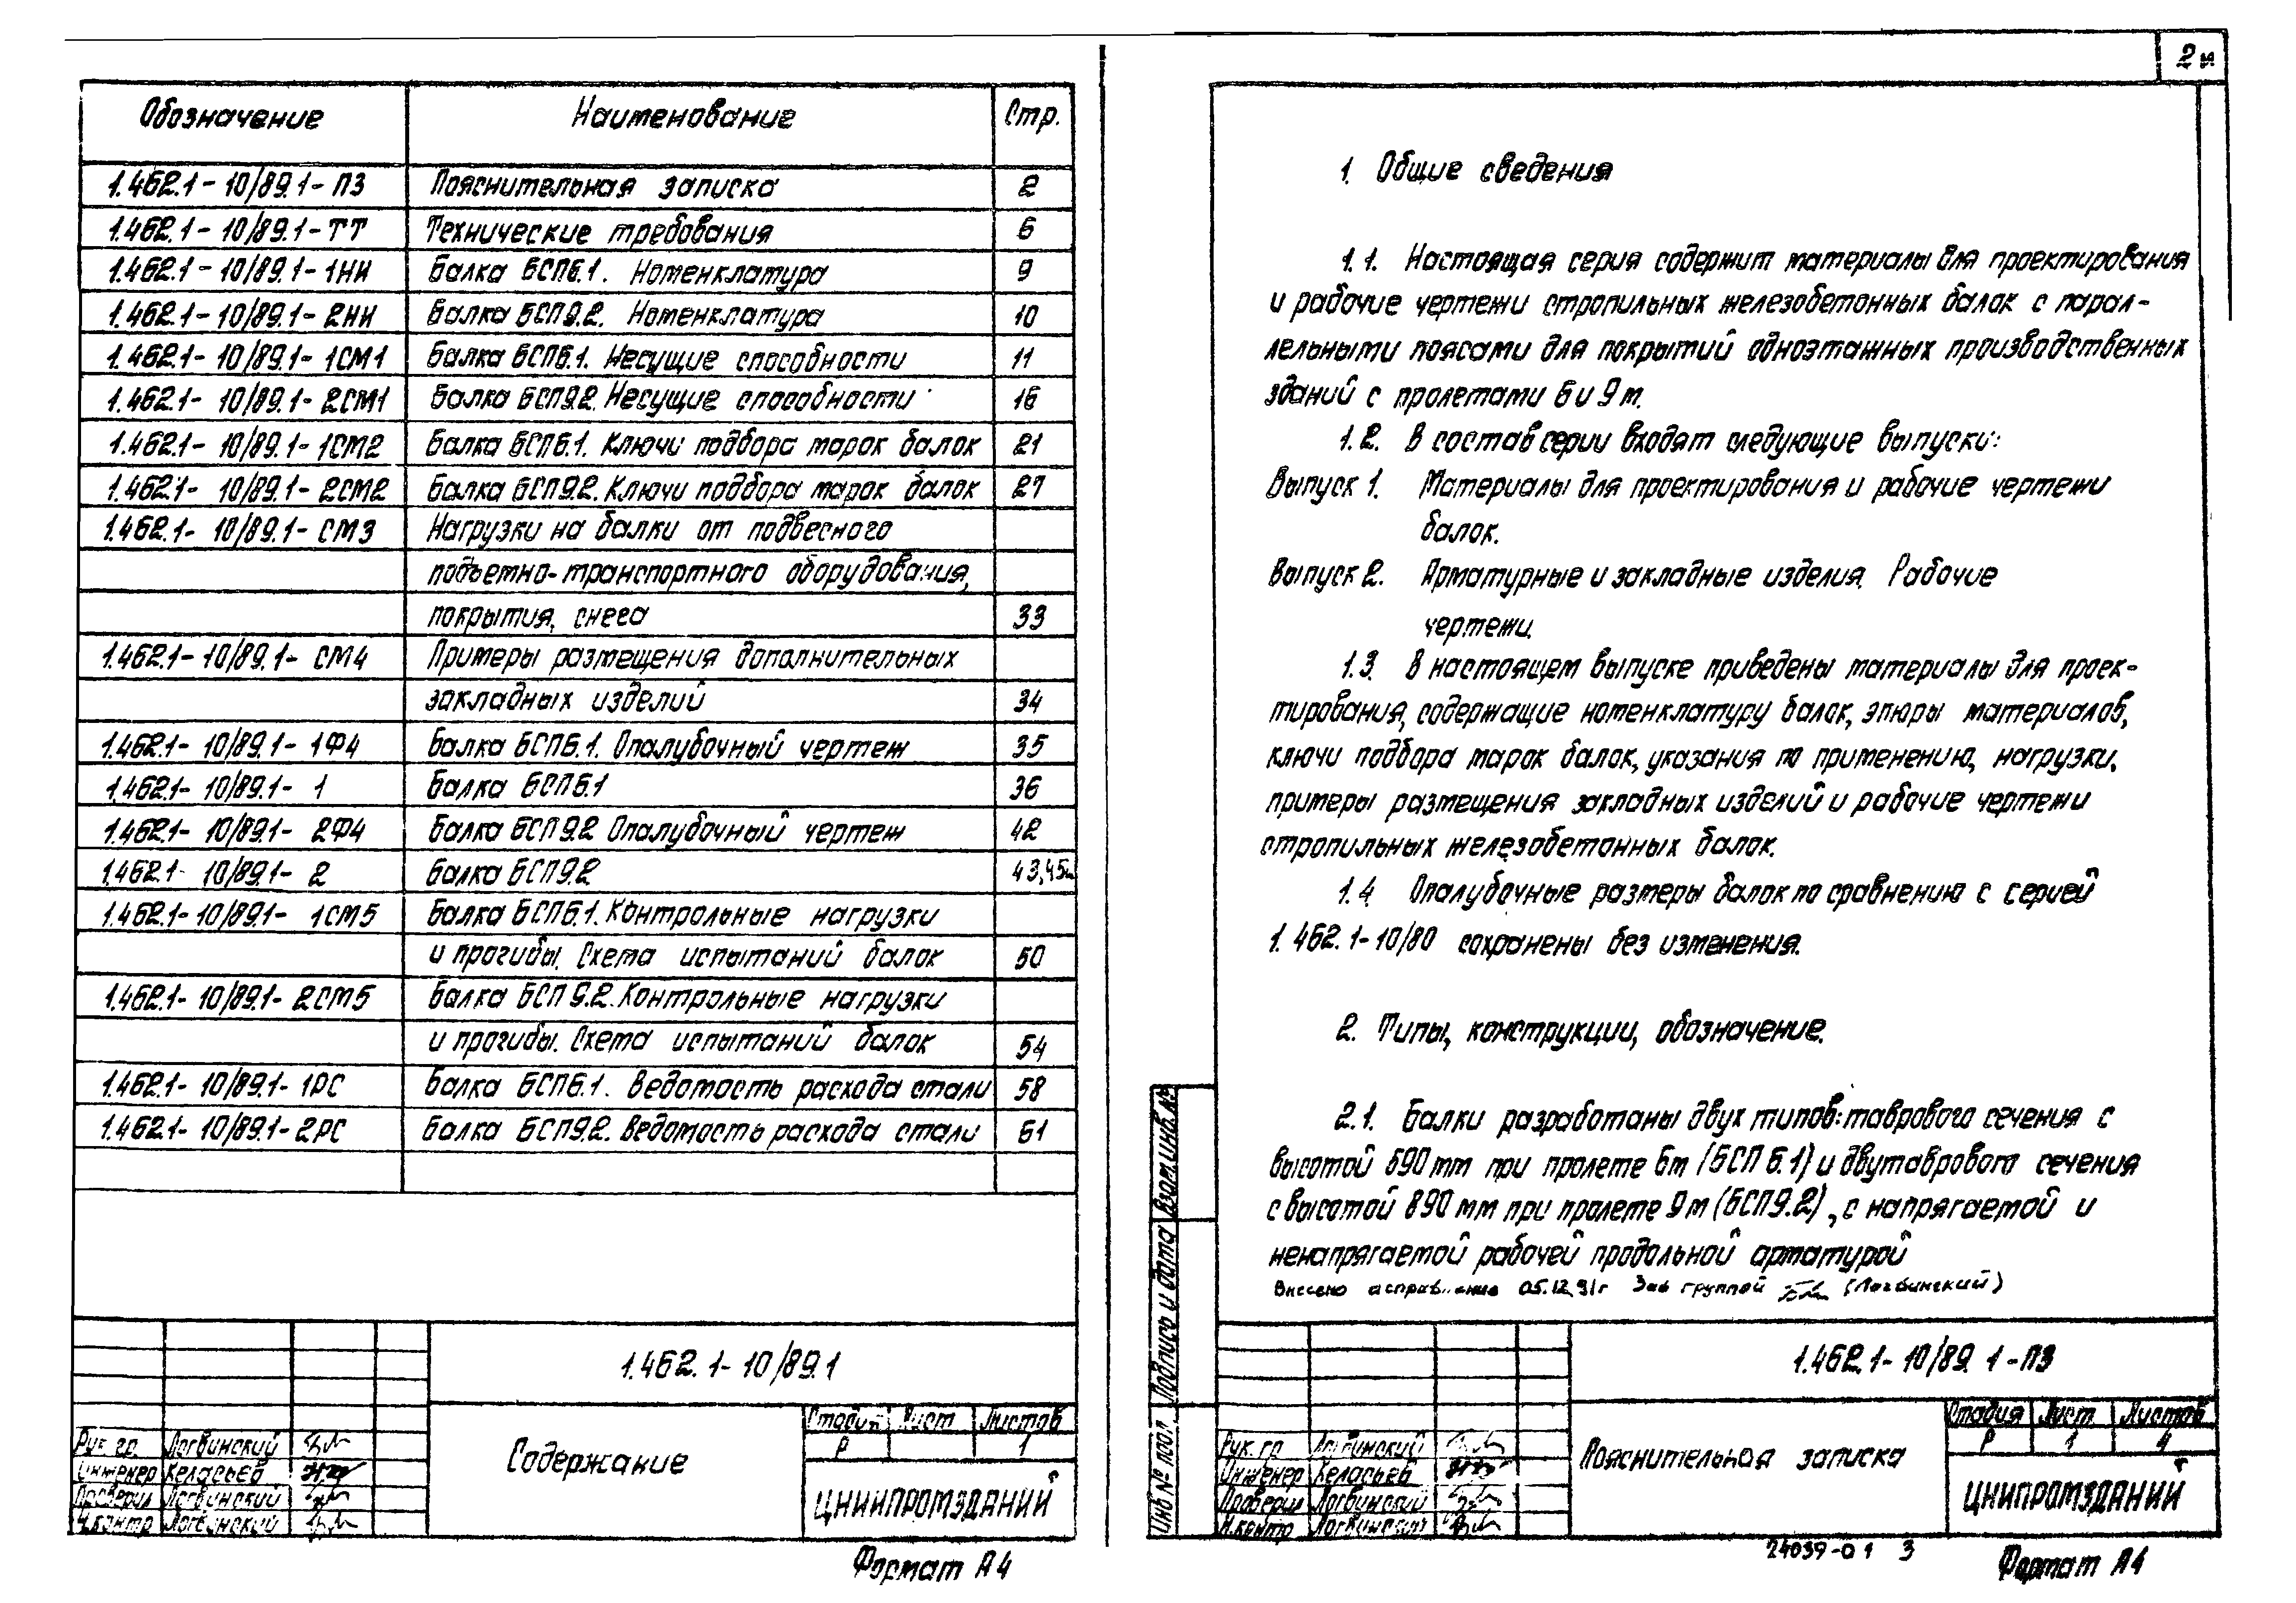 Обозначение Наименование Стр.
1.462.1-10/89.1-ПЗ Пояснительная записка 2
1.462.1-10/89.1-ТТ Технические требования 6
1.462.1-10/89.1-1НИ Балка БСП6.1. Номенклатура 9
1.462.1-10/89.1-2НИ Балка БСП9.2. Номенклатура 10
1.462.1-10/89.1-1СМ1 Балка БСП6.1. Несущие способности 11
1.462.1-10/89.1-2СМ1 Балка БСП9.2. Несущие способности 16
1.462.1-10/89.1-1СМ2 Балка БСП6.1. Ключи подбора марок балок 21
1.462.1-10/89.1-2СМ2 Балка БСП9.2. Ключи подбора марок балок 27
1.462.1-10/89.1-СМ3 Нагрузки на балки от подвесного
подъемно-транспортного оборудования,
покрытия, снега 33
1.462.1-10/89.1-СМ4 Примеры размещения дополнительных
закладных изделий 34
1.462.1-10/89.1-1ФЧ Балка БСП6.1. Опалубочный чертеж 35
1.462.1-10/89.1-1 Балка БСП6.1 36
1.462.1-10/89.1-2ФЧ Балка БСП9.2 Опалубочный чертеж 42
1.462.1-10/89.1-2 Балка БСП9.2 43,45и
1.462.1-10/89.1-1СМ5 Балка БСП6.1. Контрольные нагрузки
и прогибы. Схема испытаний балок 50
1.462.1-10/89.1-2СМ5 Балка БСП9.2. Контрольные нагрузки
и прогибы. Схема испытаний балок 54
1.462.1-10/89.1-1РС Балка БСП6.1. Ведомость расхода стали 58
1.462.1-10/89.1-2РС Балка БСП9.2. Ведомость расхода стали 61
1.462.1-10/89.1
Содержание
Стадия Лист Листов
Р 1
ЦНИИПРОМЗДАНИЙ
Рук. гр. Логвинский
Инженер Келасьев
Проверил Логвинский
Н.контр Логвинский
Формат А4
2и
1. Общие сведения
1.1. Настоящая серия содержит материалы для проектирования
и рабочие чертежи стропильных железобетонных балок с парал-
лельными поясами для покрытий одноэтажных производственных
зданий с пролетами 6 и 9 м.
1.2. В состав серии входят следующие выпуски:
Выпуск 1. Материалы для проектирования и рабочие чертежи
балок.
Выпуск 2. Арматурные и закладные изделия. Рабочие
чертежи.
1.3. В настоящем выпуске приведены материалы для проек-
тирования, содержащие номенклатуру балок, эпюры материалов,
ключи подбора марок балок, указания по применению, нагрузки,
примеры размещения закладных изделий и рабочие чертежи
стропильных железобетонных балок.
1.4. Опалубочные размеры балок по сравнению с серией
1.462.1-10/80 сохранены без изменения.
2. Типы, конструкции, обозначение.
2.1. Балки разработаны двух типов: таврового сечения с
высотой 590 мм при пролете 6 м (БСП 6.1) и двутаврового сечения
с высотой 890 мм при пролете 9 м (БСП9.2), с напрягаемой и
ненапрягаемой рабочей продольной арматурой
Внесено исправление 05.12.91г Зав группой (Логвинский)
Взам.инв.№
Подпись и дата
Инв № подл.
1.462.1-10/89.1-ПЗ
Пояснительная записка
Стадия Лист Листов
Р 1 4
ЦНИИПРОМЗДАНИЙ
Рук. гр Логвинский
Инженер Келасьев
Проверил Логвинский
Н.контр Логвинский
24039-01 3
Формат А4